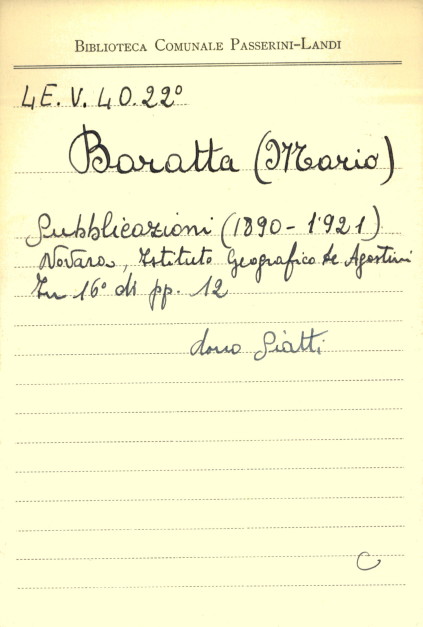 BIBLIOTECA COMUNALE PASSERINI-LANDI
4E.V.40.22°
Baratta (Mario)
Pubblicazioni (1890-1921)
Novara, Istituto Geografico De Agostini
In 16° di pp. 12
dono Piatti
C